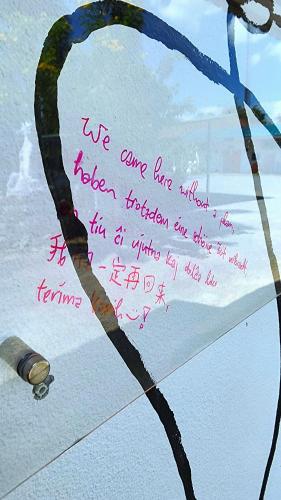 We came here without a plan,
haben trotzdem eine schöne Zeit verbracht
tiu ĉi
我们一定再回来,
terima kasih !